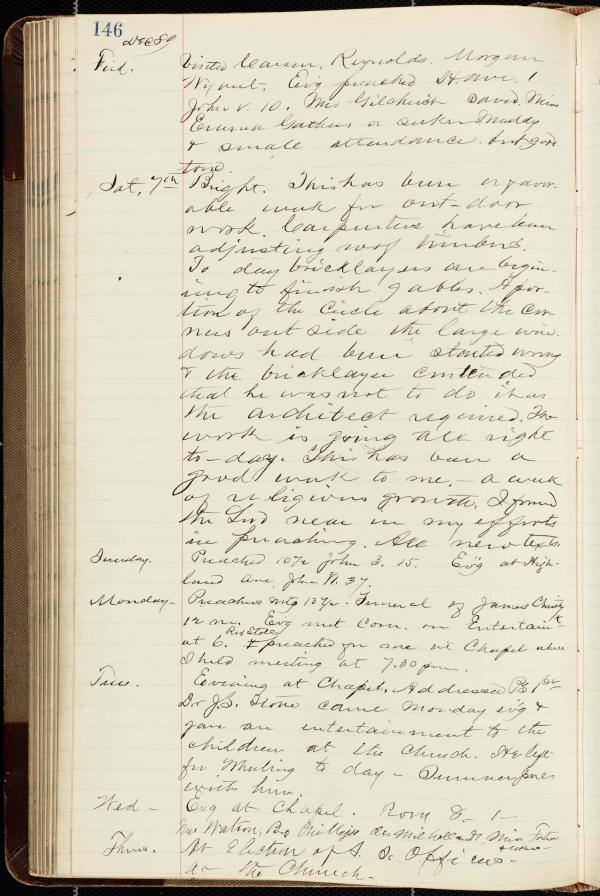 146
Dec 89
Frid. Visited Carson, Reynolds, Morgan
Wyant. Evg preached H. Ave. 1
John V. 10. Mrs Gilchrist David Miss
Emma Gathers a seeker Muddy
& small attendance. but good
tone.
Sat, 7th Bright. This has been a favor-
able week for out-door
work. Carpenters have been
adjusting roof timbers.
To day bricklayers are begin-
ing to finish gables. A por-
tion of the circle about the cor-
ners out side the large win-
dows had been started wrong
& the bricklayer contended
that he was not to do it as
the architect required. The
work is going all right
to-day. This has been a
good week to me, - a week
of religious growth. I found
the Lord near in my efforts
in preaching. All new texts.
Sunday. Preached 10½ John 3. 15. Evg at High-
land Ave, John VI. 37.
Monday- Preachers mtg 10½. Funeral of James Christy
12 m. Evg met Com. on Entertain't
at 6. Rev Stone preached for me at Chapel where
I held meeting at 7.30 p.m.
Tues. Evening at Chapel. Addressed
Dr J.S. Stone came Monday evg &
gave an entertainment to the
children at the Church. He left
for Wheeling to day - Sumner goes
with him.
Wed - Evg at Chapel. Rom 8. 1-
Mrs Watson, Bro Phillips Miss Foster
seekers
Thurs. At Election of S. S. Officers-
at the Church.